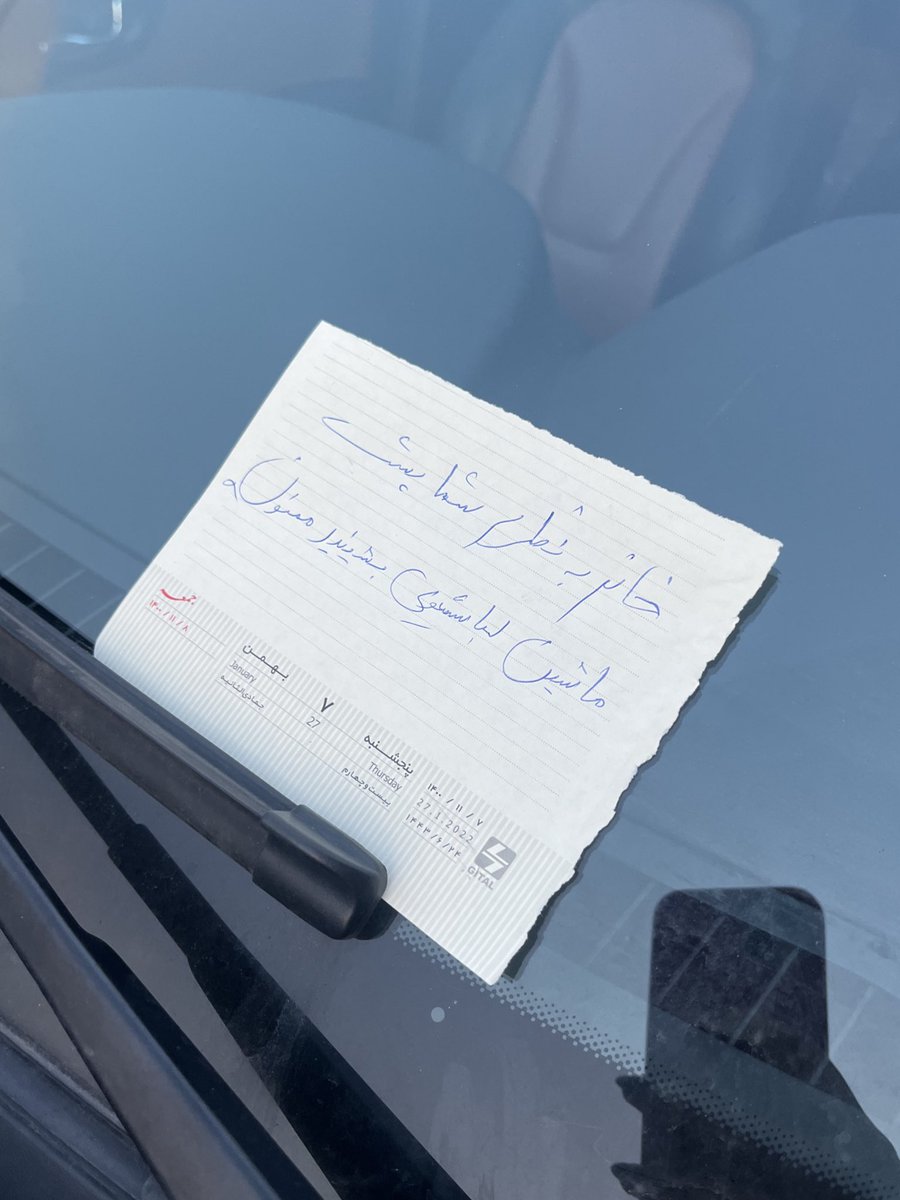 خانم به نظرم شما پشت
ماشین لباسشویی بشینید ممنون
۱۴۰۰/۱۱/۷
27.1.2022
۱۴۴۳/۶/۲۴
GITAL
پنجشنبه
Thursday
بیست و چهارم
۷
27
بهمن
January
جمادی‌الثانیه
۱۴۰۰/۱۱/۸